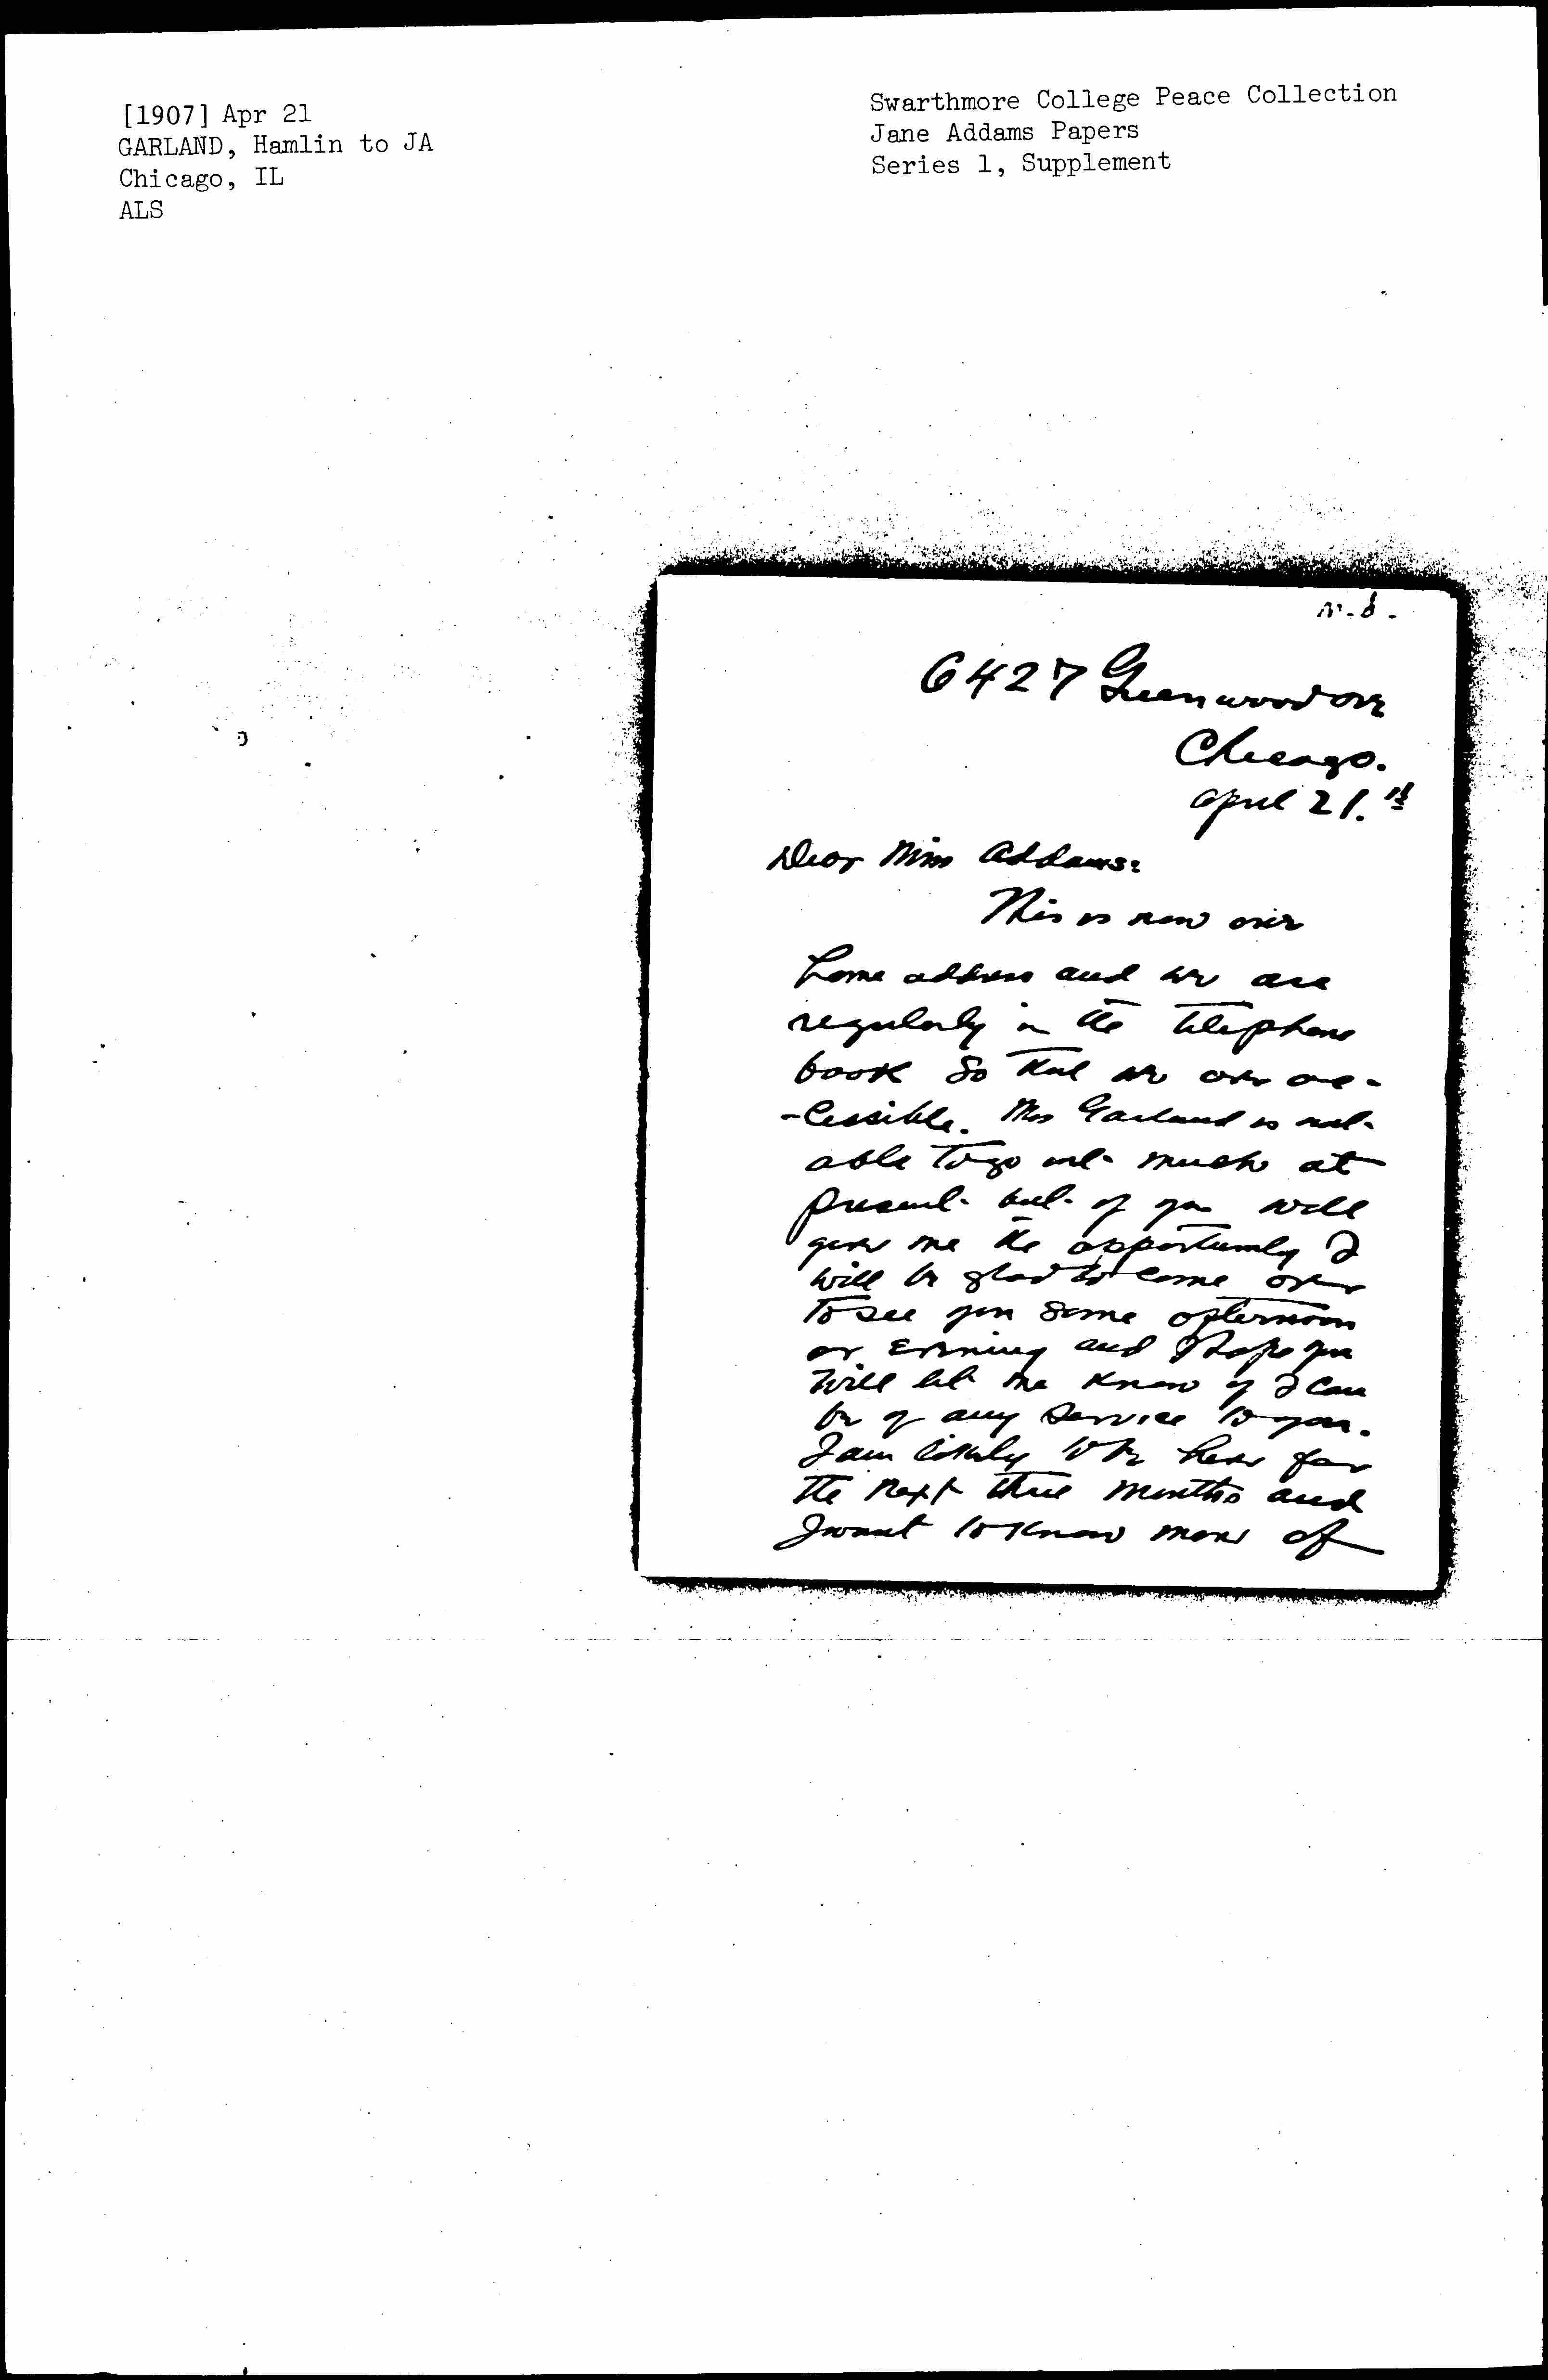 [1907] Apr 21
GARLAND, Hamlin to JA
Chicago, IL
ALS
Swarthmore College Peace Collection
Jane Addams Papers
Series 1, Supplement
n.d.
6427 Greenwood ave
Chicago.
April 21.st
Dear Miss Addams:
This is now our
home address and we are
regularly in the telephone
book so that we are ac-
-cessible. Mrs Garland is not
able to go out much at
present but if you will
give me the opportunity I
will be glad to come over
to see you some afternoon
or evening and I hope you
will let me know if I can
be of any service to you.
I am likely to be here for
the next three months and
I want to know more of